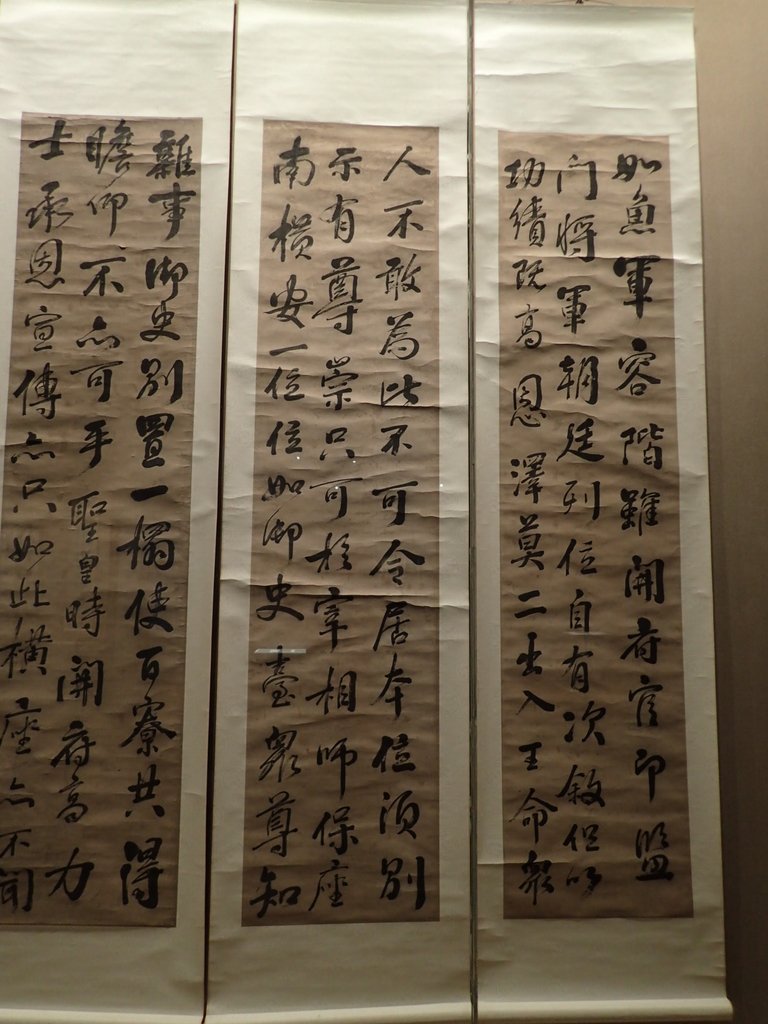 如魚軍容階雖開府官即監
门將軍朝廷列位自有次敘但以
功績既高恩澤莫二出入王命衆
人不敢為此不可令居本位須別
示有尊崇只可於宰相師保座
南橫安一位位如御史臺衆尊知
雜事御史別置一榻使百寮共得
瞻仰不亦可乎聖皇時開府高力
士承恩宣傳亦只如此橫座亦不聞